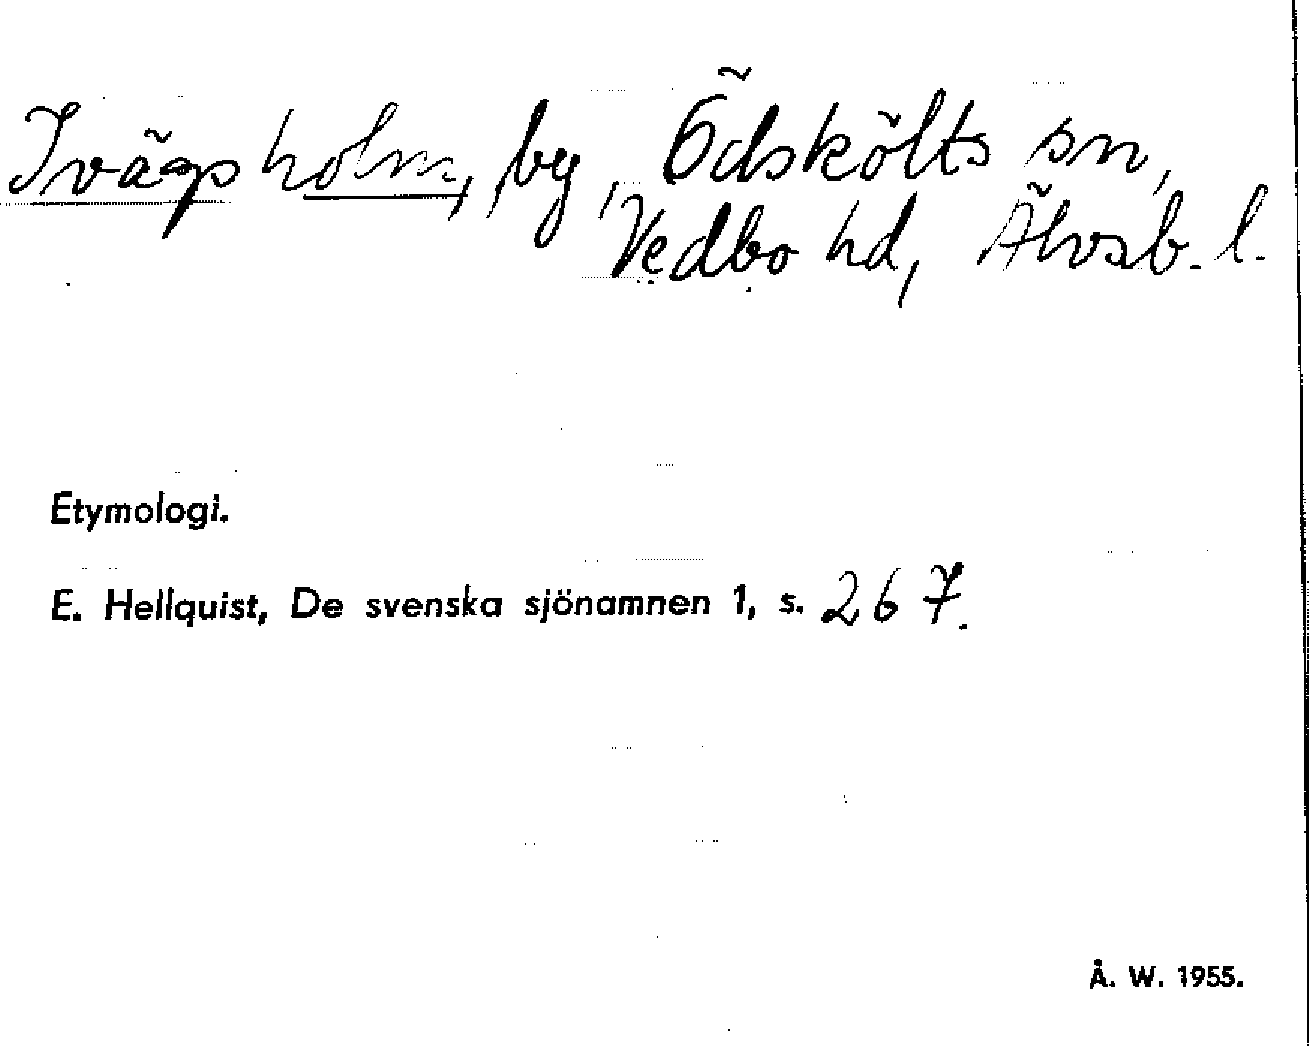 Ivägsholm, by, Ödskölts sn,
Vedbo hd, Älvsb. l.
Etymologi.
E. Hellquist, De svenska sjönamnen 1, s. 267.
Å. W. 1955.